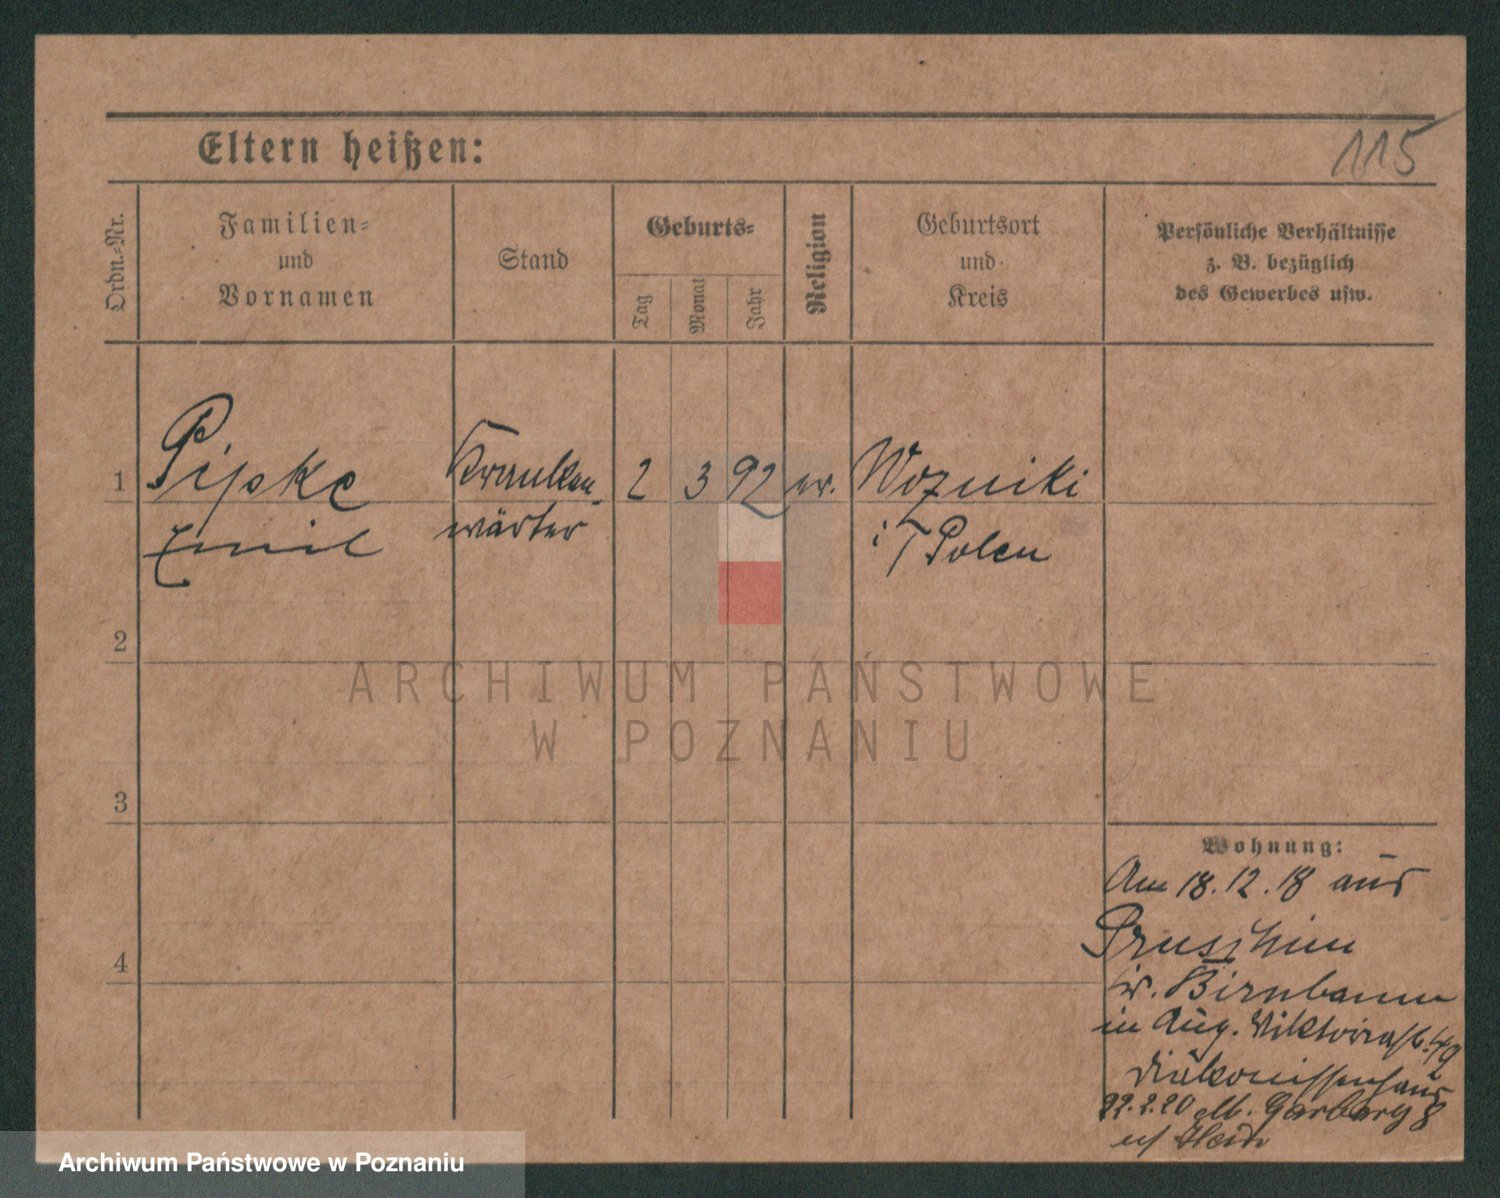 115
Eltern heißen:
Ordn.-Nr.
Familien-
und
Vornamen
Stand
Geburts-
Tag
Monat
Jahr
Religion
Geburtsort
und
Kreis
Persönliche Verhältnisse
z. B. bezüglich
des Gewerbes usw.
1
Pipke
Emil
Kranken-
wärter
2
3
92
ev.
Wozniki
i/Polen
2
3
4
Wohnung:
Am 18.12.18 aus
Pruschim
Kr. Birnbaum
in Aug. Viktoriastr. 49
Diakonissenhaus
Garbary 8
ARCHIWUM PAŃSTWOWE
W POZNANIU
Archiwum Państwowe w Poznaniu